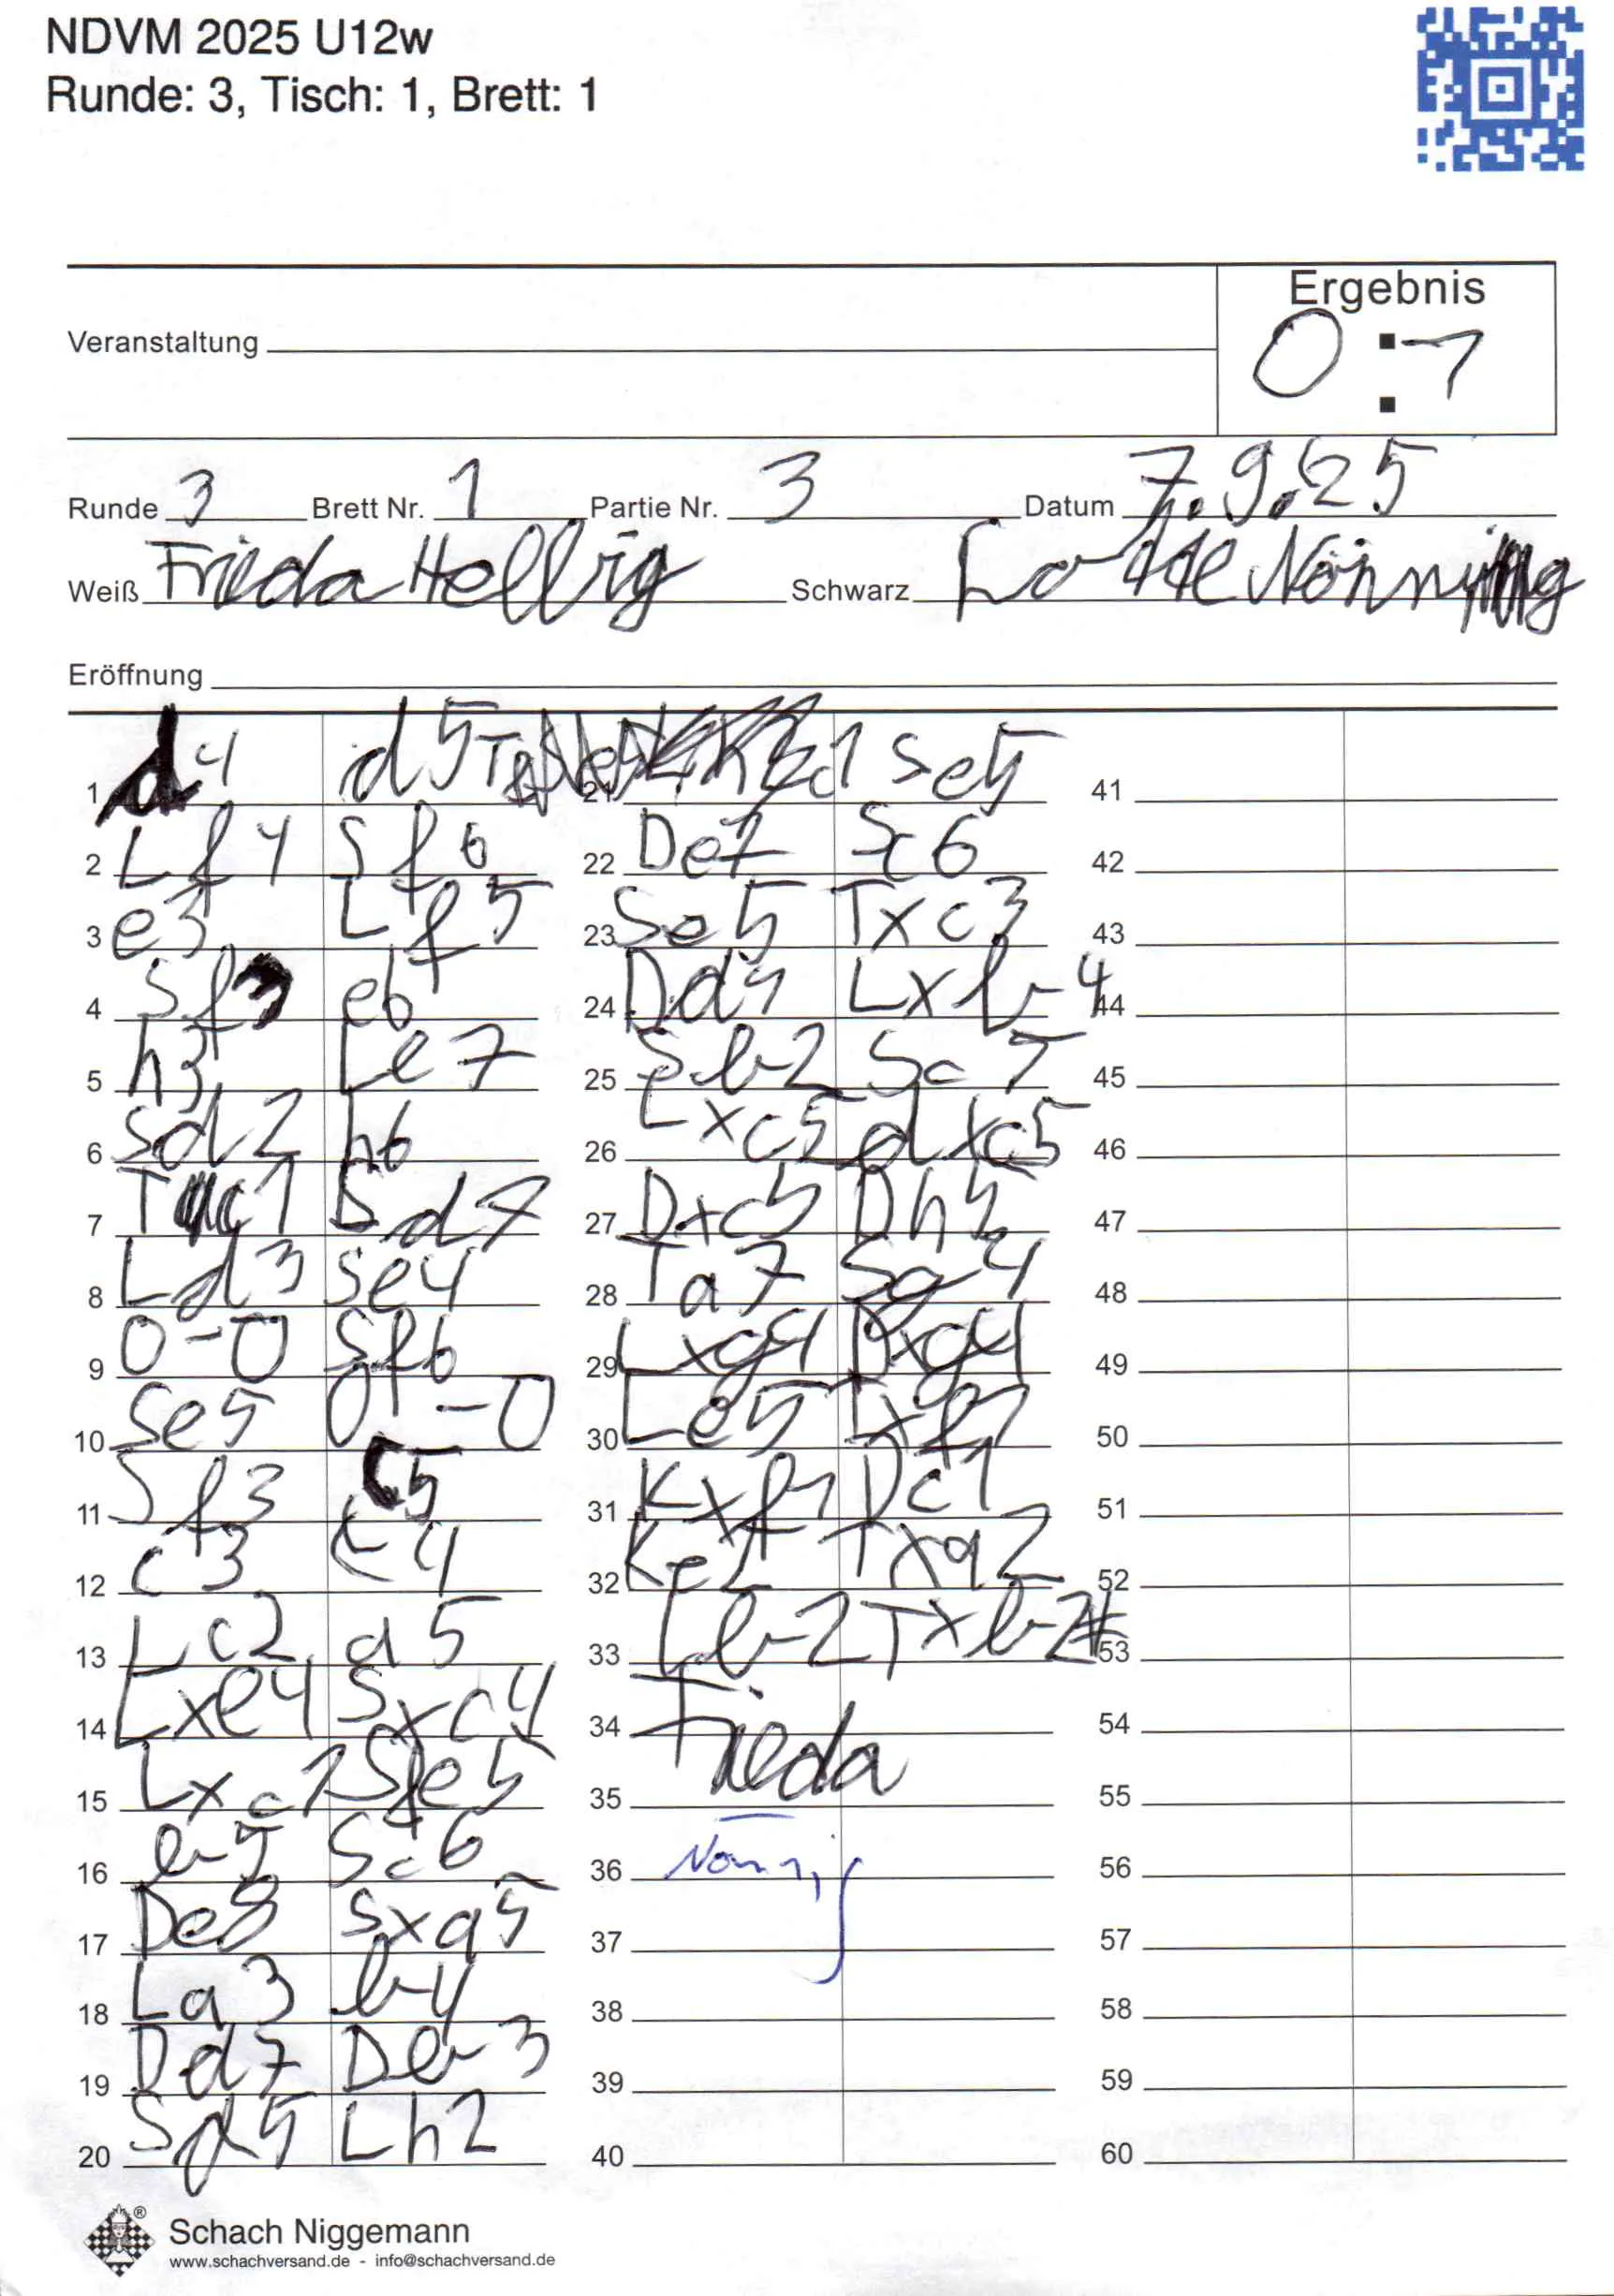 NDVM 2025 U12w
Runde: 3, Tisch: 1, Brett: 1
Ergebnis
Veranstaltung 0 : 1
Runde 3 Brett Nr. 1 Partie Nr. 3 Datum 7.9.25
Weiß Frieda Hellwig Schwarz Lotte Nönning
Eröffnung
1 d4 d5 21 Se5 41
2 Lf4 Sf6 22 De7 Sc6 42
3 e3 Lf5 23 Se5 Txc3 43
4 Sf3 e6 24 Dd4 Lxb4 44
5 h3 Le7 25 Sb2 Sc5 45
6 Sd2 h6 26 Lxc5 dxc5 46
7 Tc1 Sd7 27 Dxc5 Dh5 47
8 Ld3 Se4 28 Ta7 Sg4 48
9 0-0 Sf6 29 Lxg4 Dxg4 49
10 Se5 0-0 30 Le5 Txf1 50
11 Sf3 c5 31 Kxf1 Dc1 51
12 c3 c4 32 Ke2 Txa2 52
13 Lc2 a5 33 Lb2 Txb2# 53
14 Lxe4 Sxc4 34 Frieda 54
15 35 55
16 b5 Sc6 36 56
17 De3 Sxa5 37 57
18 La3 b4 38 58
19 Dd7 Db3 39 59
20 Sd5 Lh2 40 60
®
Schach Niggemann
www.schachversand.de - info@schachversand.de